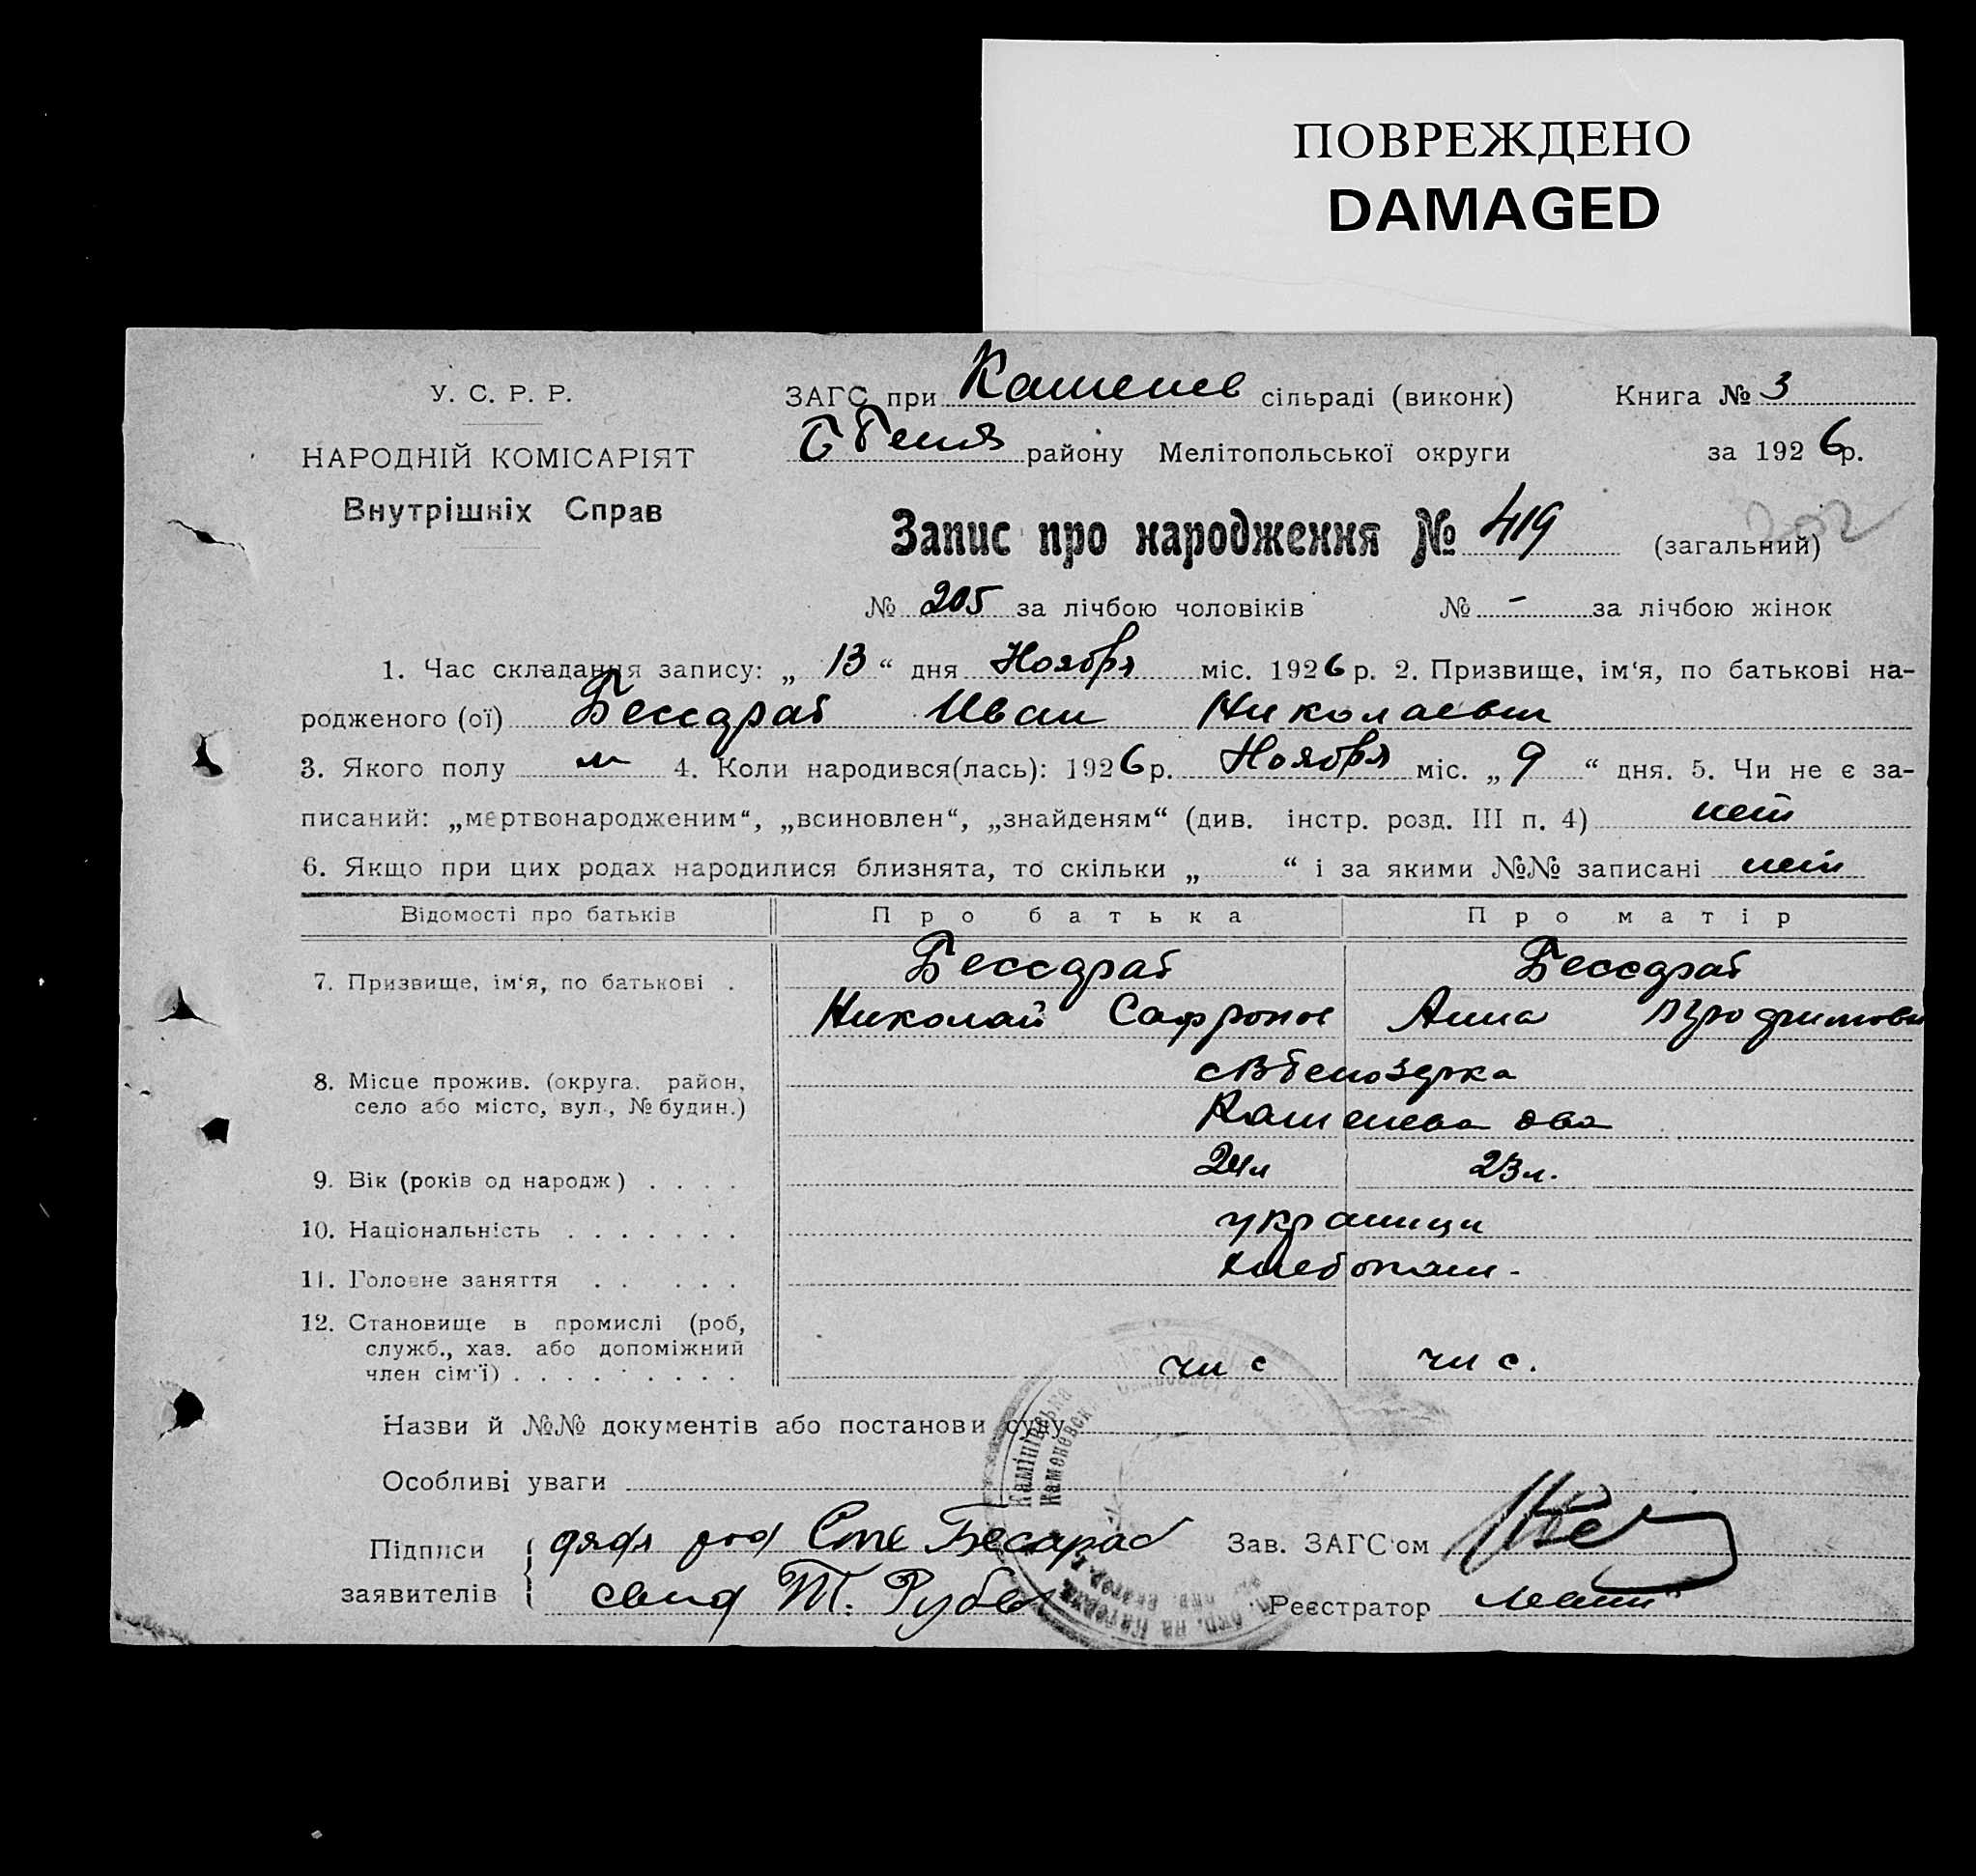 ПОВРЕЖДЕНО
DAMAGED
У. С. Р. Р.
НАРОДНІЙ КОМІСАРІЯТ
Внутрішніх Справ
ЗАГС при Каменев сільраді (виконк) Книга № 3
району Мелітопольської округи за 1926 р.
Запис про народження № 419 (загальний)
202
№ 205 за лічбою чоловіків № - за лічбою жінок
1. Час складання запису: „ 13 “ дня Ноября міс. 1926 р. 2. Призвище, ім‘я, по батькові на-
родженого (ої) Бессараб Иван Николаевич
3. Якого полу м 4. Коли народився(лась): 1926 р. Ноября міс. „ 9 “ дня. 5. Чи не є за-
писаний: „мертвонародженим“, „всиновлен“, „знайденям“ (див. інстр. розд. III п. 4) нет
6. Якщо при цих родах народилися близнята, то скільки „ “ і за якими №№ записані нет
Відомості про батьків Про батька Про матір
7. Призвище, ім‘я, по батькові . Бессараб Бессараб
Николай Сафронов Анна Трофимовн
8. Місце прожив. (округа, район,
село або місто, вул., № будин.)
9. Вік (років од народж) . . . . 24 л 23 л.
10. Національність . . . . . . . украинци
11. Головне заняття . . . . . хлебопаш-
12. Становище в промислі (роб,
служб., хаз. або допоміжний
член сім‘ї) . . . . . . . . . чл с чл с.
Назви й №№ документів або постанови суду
Особливі уваги
Підписи
заявителів
дядя род Сте Бесараб
свид Т. Рубе
Зав. ЗАГС‘ом
Реєстратор